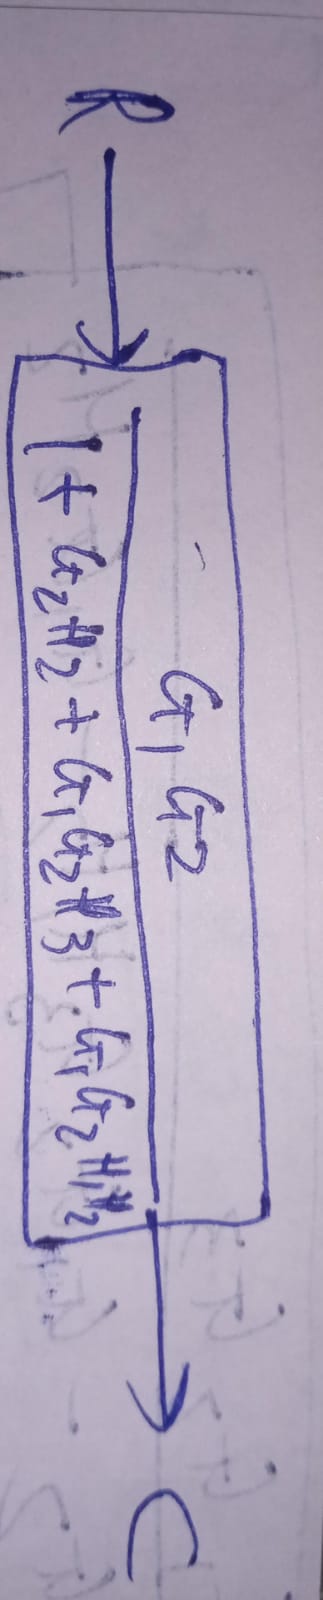 R
G₁G2
1 + G₂H₂ + G₁G₂H3 + G₁G₂H₁H₂
C